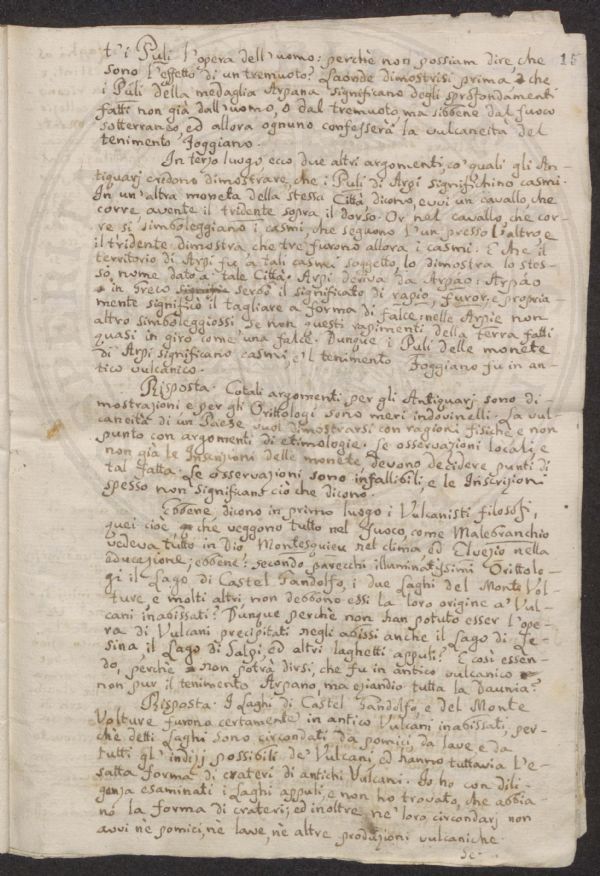 15
t'i Puli l'opera dell'uomo: perchè non possiam dire, che
sono l'effetto di un tremuoto? Laonde dimostrisi prima, che
i Puli della medaglia Arpana significano degli sprofondamenti
fatti non già dall'uomo, o dal tremuoto, ma sibbene dal fuoco
sotterraneo, ed allora ognuno confesserà la vulcaneità del
tenimento Foggiano.
In terzo luogo ecco due altri argomenti, co' quali gli An-
tiquarj credono dimostrare, che i Puli di Arpi significhino casmi.
In un'altra moneta della stessa Città dicono, evvi un cavallo, che
corre avente il tridente sopra il dorso. Or nel cavallo, che cor-
re si simboleggiano i casmi, che seguono l'un presso l'altro, e
il tridente dimostra che tre furono allora i casmi. E che il
territorio di Arpi fu a tali casmi soggetto, lo dimostra lo stes-
so nome dato a tale Città. Arpi deriva da Arpao: Arpao
in Greco serbò il significato di rapio, furor, e propria-
mente significò il tagliare a forma di falce: nelle Arpie non
altro simboleggiossi se non questi rapimenti della terra fatti
quasi in giro come una falce. Dunque i Puli delle monete
di Arpi significano casmi, e'l tenimento Foggiano fu in an-
tico vulcanico.
Risposta. Cotali argomenti per gli Antiquarj sono di-
mostrazioni e per gli Orittologi sono meri indovinelli. La vul-
caneità di un Paese vuol dimostrarsi con ragioni fisiche e non
punto con argomenti di etimologie. Le osservazioni locali, e
non già le Inscrizioni delle monete devono decidere punti di
tal fatta. Le osservazioni sono infallibili, e le Inscrizioni
spesso non significano ciò che dicono.
Ebbene, dicono in primo luogo i Vulcanisti filosofi,
quei cioè, che veggono tutto nel fuoco, come Malebranchio
vedeva tutto in Dio, Montesquieu nel clima ed Elvezio nella
educazione; ebbene: secondo parecchi illuminatissimi Orittolo-
gi il Lago di Castel Gandolfo, i due Laghi del Monte Vol-
ture, e molti altri non debbono essi la loro origine a' Vul-
cani inabissati? Dunque perchè non han potuto esser l'ope-
ra di Vulcani precipitati negli abissi anche il Lago di Le-
sina il Lago di Salpi, ed altri laghetti appuli? E così essen-
do, perchè non potrà dirsi, che fu in antico vulcanico
non pur il tenimento Arpano, ma eziandio tutta la Daunia?
Risposta. I Laghi di Castel Gandolfo, e del Monte
Volture furono certamente in antico Vulcani inabissati, per-
chè detti Laghi sono circondati da pomici, da lave, e da
tutti gl'indizj possibili de' Vulcani, ed hanno tuttavia l'e-
satta forma di crateri di antichi Vulcani. Io ho con dili-
genza esaminati i Laghi appuli, e non ho trovato, che abbia-
no la forma di crateri; ed inoltre ne' loro circondarj non
avvi nè pomici, ne lave, nè altre produzioni vulcaniche.
Se